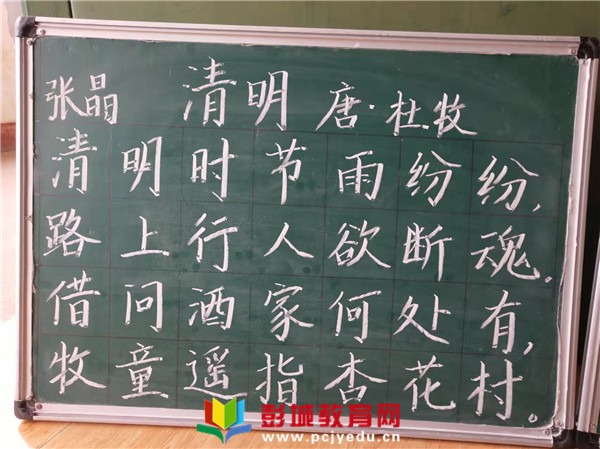 张晶 清明 唐·杜牧
清明时节雨纷纷,
路上行人欲断魂.
借问酒家何处有,
牧童遥指杏花村.
彭城教育网
www.pcjyedu.cn